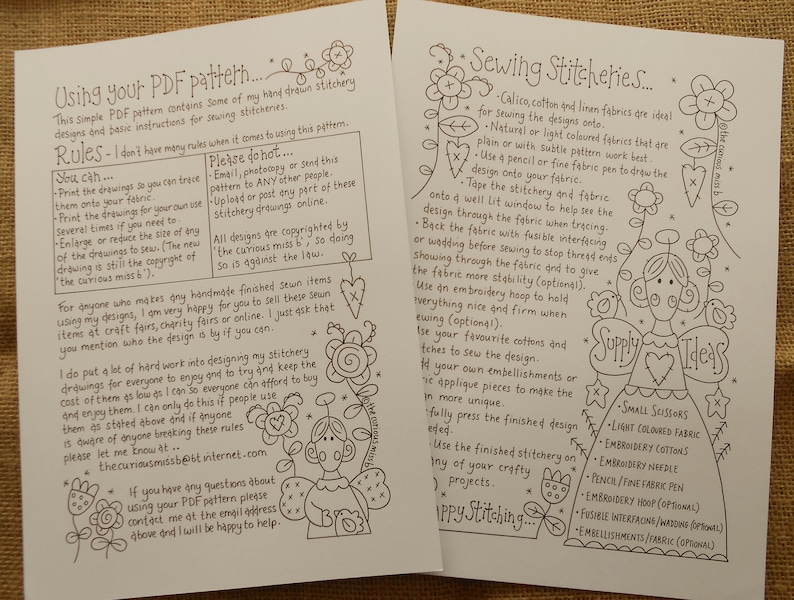 Using your PDF pattern...
This simple PDF pattern contains some of my hand drawn stitchery
designs and basic instructions for sewing stitcheries.
Rules - I don't have many rules when it comes to using this pattern.
You can ...
• Print the drawings so you can trace
them onto your fabric.
• Print the drawings for your own use
several times if you need to.
• Enlarge or reduce the size of any
of the drawings to sew. (The new
drawing is still the copyright of
'the curious miss b').
Please do not ...
• Email, photocopy or send this
pattern to ANY other people.
• Upload or post any part of these
stitchery drawings online.
All designs are copyrighted by
'the curious miss b', so doing
so is against the law.
For anyone who makes any handmade finished sewn items
using my designs, I am very happy for you to sell these sewn
items at craft fairs, charity fairs or online. I just ask that
you mention who the design is by if you can.
I do put a lot of hard work into designing my stitchery
drawings for everyone to enjoy and to try and keep the
cost of them as low as I can so everyone can afford to buy
and enjoy them. I can only do this if people use
them as stated above and if anyone
is aware of anyone breaking these rules
please let me know at ..
thecuriousmissb@btinternet.com
If you have any questions about
using your PDF pattern please
contact me at the email address
above and I will be happy to help.
©thecuriousmissb
Sewing Stitcheries...
• Calico, cotton and linen fabrics are ideal
for sewing the designs onto.
• Natural or light coloured fabrics that are
plain or with subtle pattern work best.
• Use a pencil or fine fabric pen to draw the
design onto your fabric.
• Tape the stitchery and fabric
onto a well lit window to help see the
design through the fabric when tracing.
• Back the fabric with fusible interfacing
or wadding before sewing to stop thread ends
showing through the fabric and to give
the fabric more stability (optional).
Use an embroidery hoop to hold
everything nice and firm when
ewing (optional).
se your favourite cottons and
tches to sew the design.
d your own embellishments or
ic applique pieces to make the
n more unique.
fully press the finished design
eeded.
• Use the finished stitchery on
any of your crafty
projects.
appy Stitching...
©the curious miss b
Supply Ideas
• Small Scissors
• Light Coloured Fabric
• Embroidery Cottons
• Embroidery Needle
• Pencil/Fine Fabric Pen
• Embroidery Hoop (optional)
• Fusible Interfacing/Wadding (optional)
• Embellishments/Fabric (optional)